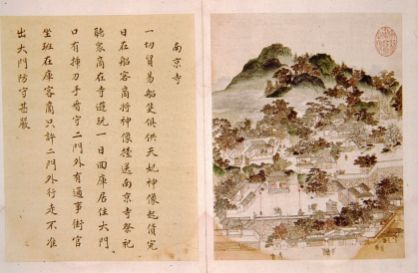 南京寺
一切貿易船隻俱供天妃神像起貨完
日在船客商將神像擡送南京寺祭祀
聽衆商在寺遊玩一日回庫居住大門
口有插刀手看守二門外有通事街官
坐班在庫客商只許二門外行走不准
出大門防守甚嚴